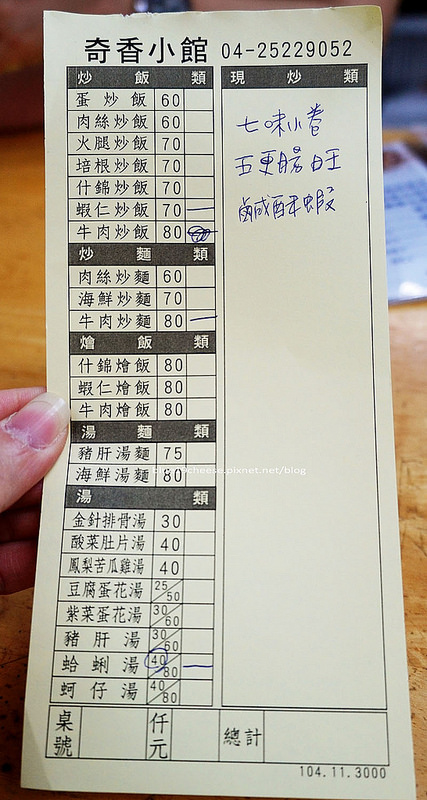 奇香小館 04-25229052
炒飯類
蛋炒飯 60
肉絲炒飯 60
火腿炒飯 70
培根炒飯 70
什錦炒飯 70
蝦仁炒飯 70 一
牛肉炒飯 80
炒麵類
肉絲炒麵 60
海鮮炒麵 70
牛肉炒麵 80 一
燴飯類
什錦燴飯 80
蝦仁燴飯 80
牛肉燴飯 80
湯麵類
豬肝湯麵 75
海鮮湯麵 80
湯類
金針排骨湯 30
酸菜肚片湯 40
鳳梨苦瓜雞湯 40
豆腐蛋花湯 25/50
紫菜蛋花湯 30/60
豬肝湯 30/60
蛤蜊湯 40/80 一
蚵仔湯 40/80
桌號 仟元 總計
104.11.3000
現炒類
七味小卷
五更腸旺
鹹酥蝦
cheese.pixnet.net/blog